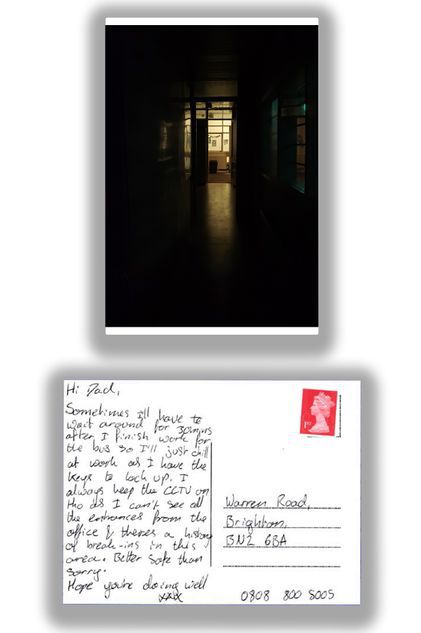 Hi Dad,
Sometimes I'll have to
wait around for 30mins
after I finish work for
the bus so I'll just chill
at work as I have the
keys to lock up. I
always keep the CCTV on
tho as I can't see all
the entrances from the
office & theres a history
of break-ins in this
area. Better safe than
sorry.
Hope you're doing well
xxx
1ST
Warren Road,
Brighton,
BN2 6BA
0808 800 5005